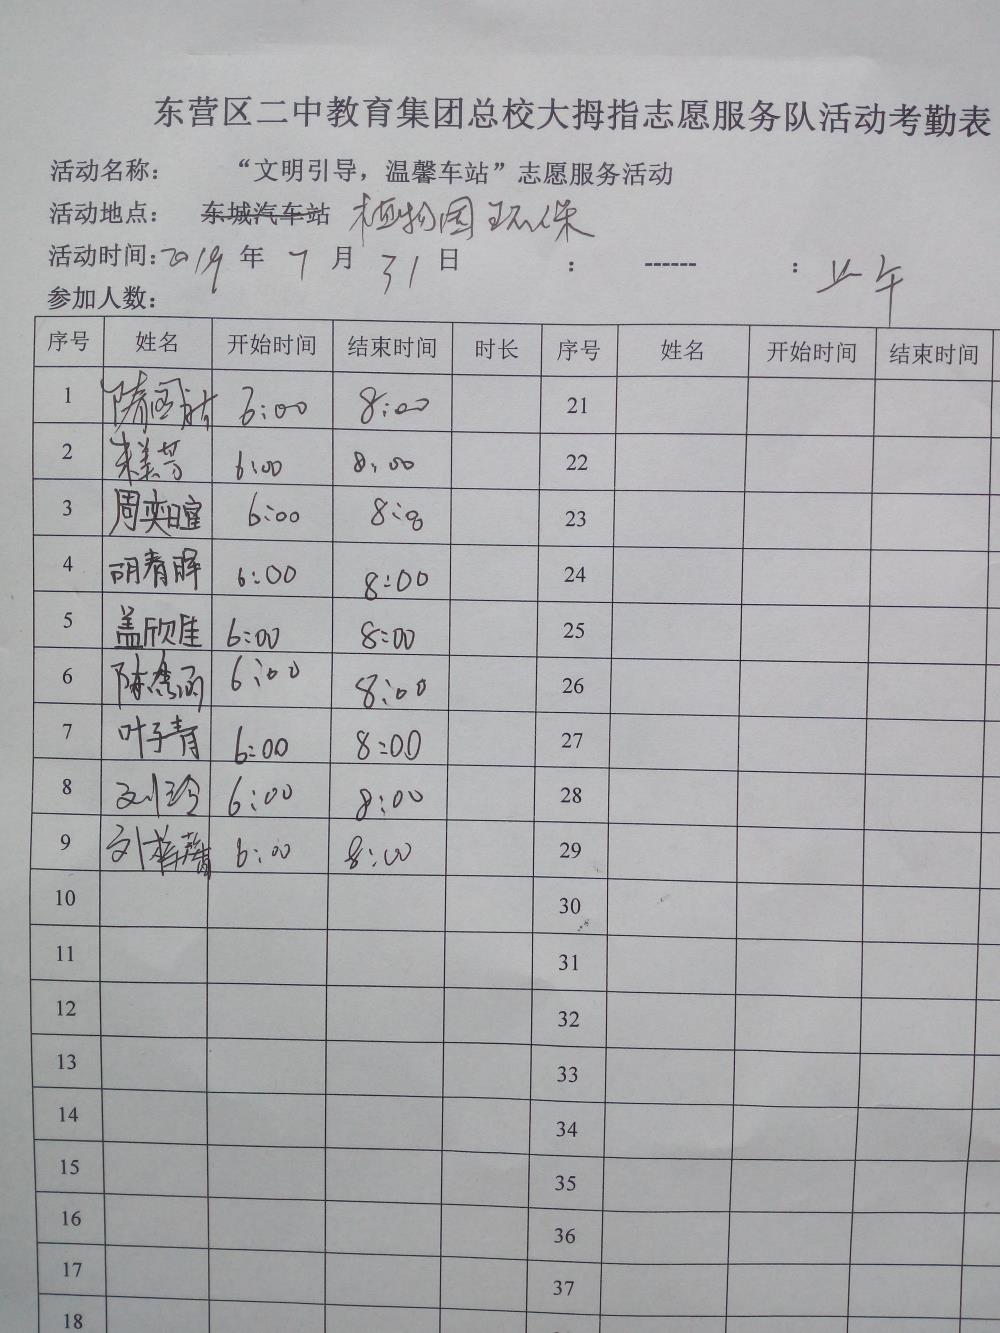 东营区二中教育集团总校大拇指志愿服务队活动考勤表
活动名称： “文明引导，温馨车站”志愿服务活动
活动地点： 东城汽车站 植物园环保
活动时间：2019年 7 月 31 日 ： ------ ： 上午
参加人数：
序号 姓名 开始时间 结束时间 时长 序号 姓名 开始时间 结束时间
1 隋国 6:00 8:00 21
2 朱美芳 6:00 8:00 22
3 周奕暄 6:00 8:00 23
4 胡青 6:00 8:00 24
5 盖欣佳 6:00 8:00 25
6 陈 涵 6:00 8:00 26
7 叶子青 6:00 8:00 27
8 刘玲 6:00 8:00 28
9 刘 6:00 8:00 29
10 30
11 31
12 32
13 33
14 34
15 35
16 36
17 37
18